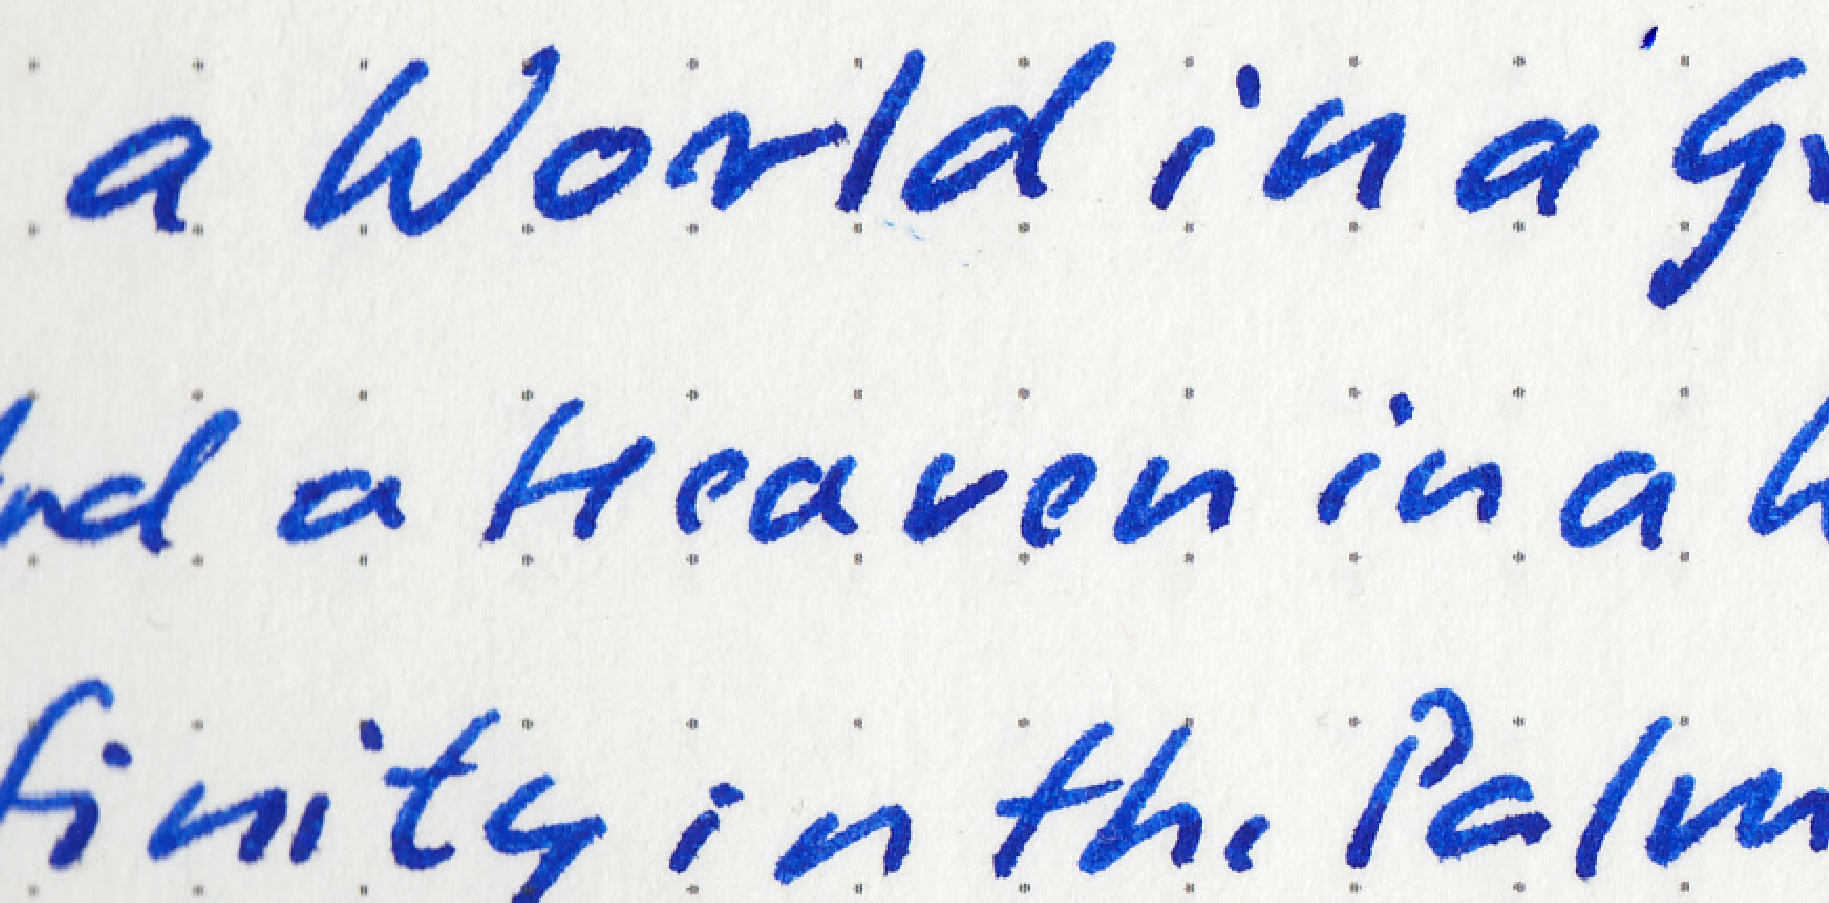 a World in a Gr
And a Heaven in a W
finity in the Palm